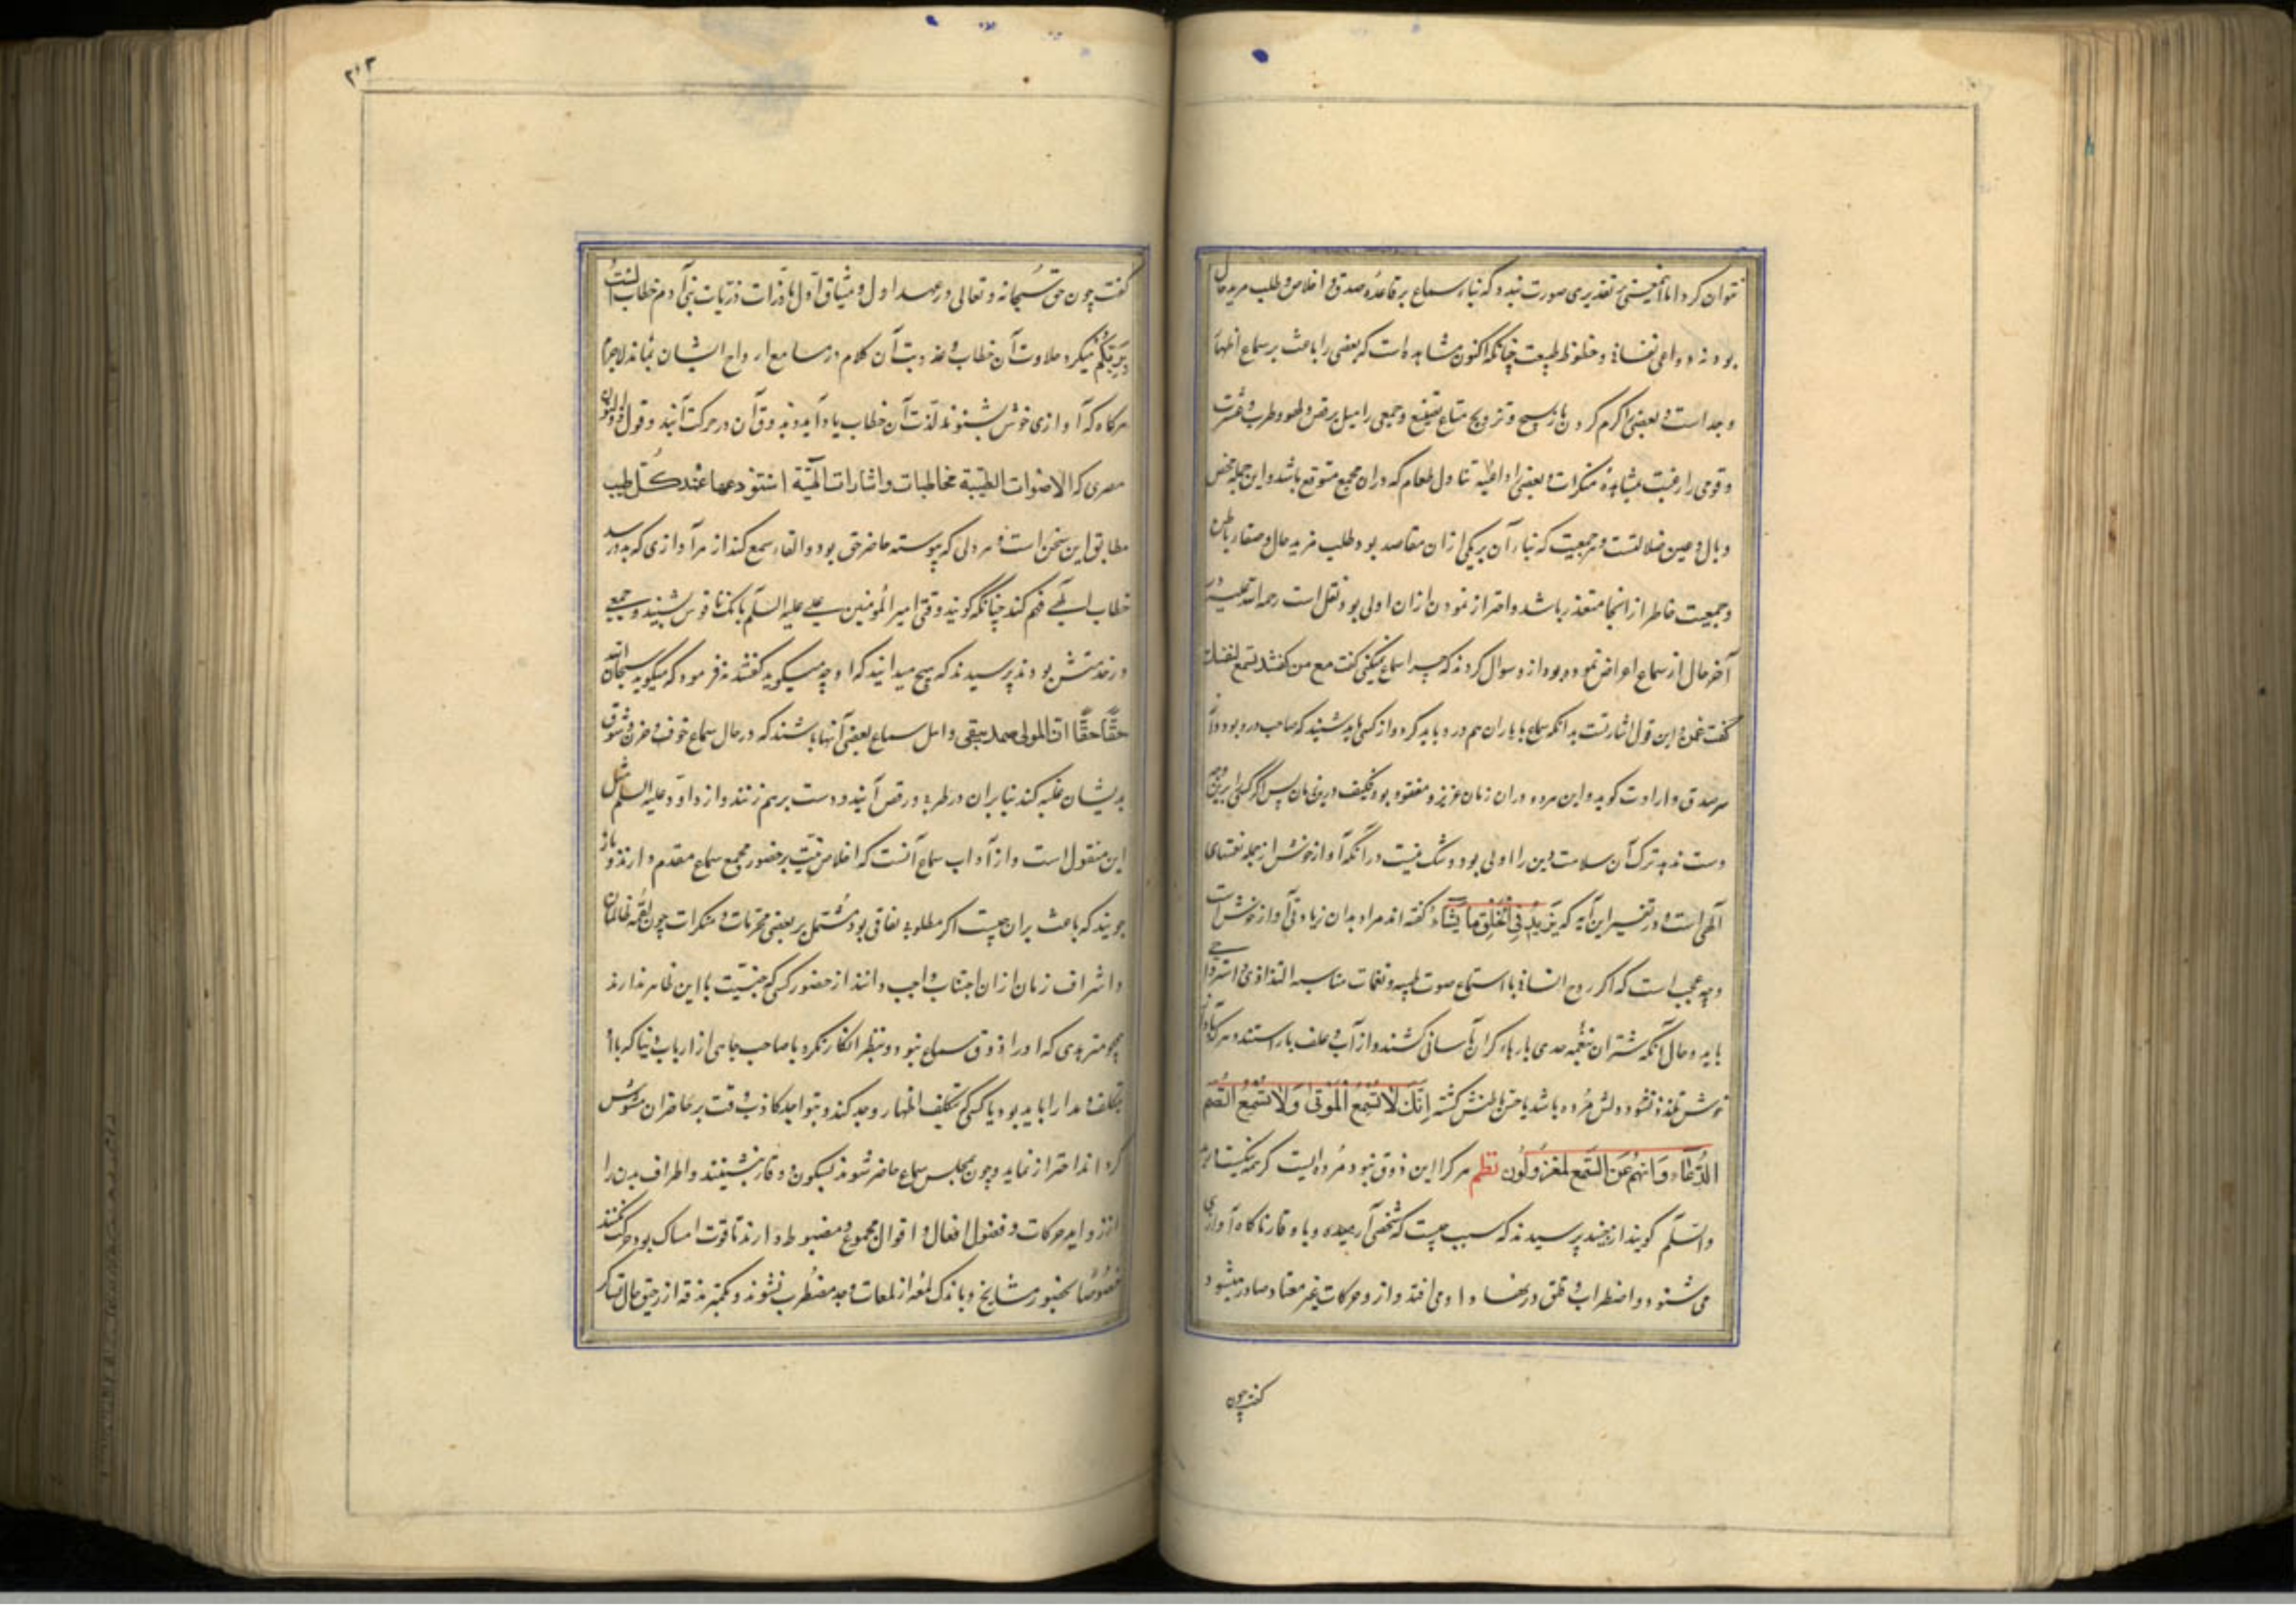 نتوان کرد اما آنچنین بر تقدیری صورت نبدد که بناء سماع بر قاعدهٔ صدق و اخلاص و طلب مرید حال
بود نه دواعی نفسانی و حظوظ طبیعت چنانکه اکنون مشاهد است که بعضی را باعث بر سماع اظهار
وجد است و بعضی را گرم کردن بازار تسبیح و ترویج متاع تصنع و جمعی را میل برقص و لهو و طرب و عشرت
و قومی را رغبت بمشاهدهٔ منکرات و بعضی را داعیهٔ تناول طعام که دران مجمع متوقع باشد و این جمله محض
وبال و عین ضلالتست و هر جمعیت که بناء آن بر یکی ازان مقاصد بود طلب مزید حال و صفاء باطن
و جمعیت خاطر از انجا متعذر باشد و احتراز نمودن ازان اولی بود نقل است رحمة الله علیه در
آخر حال از سماع اعراض نموده بود ازو سوال کردند که چرا سماع نمیکنی گفت مع من گفتند تسمع لنفسک
گفت عمن و این قول اشارتست بدانکه سماع با یاران هم درد باید کرد و از کسی باید شنید که صاحب درد بود و از
سر صدق و ارادت گوید و این هر دو دران زمان عزیز و مفقود بود فکیف درین زمان پس اگر کسی را برین وجه
دست ندهد ترک آن سلامت دین را اولی بود و شک نیست در آنکه آواز خوش از جمله نعمتهای
الهی است و در تفسیر این آیه که یَزِیدُ فِی الْخَلْقِ مَا یَشَاءُ گفته اند مراد بدان زیادتی آواز خوش است
و چه عجب است که اگر روح انسانی با استماع صوت طیبه و نغمات مناسبه التذاذی و استرواحی
یابد و حال آنکه شتران بنغمهٔ حدی بارهاء گران بآسانی کشند و از آب و علف باز استند و هر که بآواز
خوش متلذذ نشود دلش مرده باشد یا حس باطنش گشته اِنَّکَ لَا تُسْمِعُ الْمَوْتٰی وَلَا تُسْمِعُ الصُّمَّ
الدُّعَاءَ وَاِنَّهُمْ عَنِ السَّمْعِ لَمَعْزُولُونَ نظم هر کرا این ذوق نبود مرده ایست
والسلم گویند از جنید پرسیدند که سبب چیست که شخصی آرمیده و با وقار ناگاه آوازی
می شنود و اضطراب و قلق در نهاد او می افتد و ازو حرکات غیر معتاد صادر میشود
گفت چون
۲۱۳
گفت چون حق سبحانه و تعالی در عهد اول و میثاق ازل با ذرات ذریات بنی آدم خطاب الست
بربکم میکرد حلاوت آن خطاب و عذوبت آن کلام در مسامع ارواح ایشان بماند لاجرم
هرگاه که آوازی خوش بشنوند لذت آن خطاب یاد آید و بذوق آن در حرکت آیند و قول ذوالنون
مصری که الاصوات الطیبة مخاطبات و اشارات الهیة استودعها عند کل طیب
مطابق این سخن است و هر دلی که پیوسته حاضر حق بود و القاء سمع کند از هر آوازی که بدو رسد
خطاب الهی فهم کند چنانکه گویند وقتی امیر المؤمنین علی علیه السلم بانگ ناقوس شنید و جمعی
در خدمتش بودند پرسیدند که هیچ میدانید که او چه میگوید گفتند نه فرمود که میگوید سبحان الله
حقّا حقّا ان المولی صمد یبقی و اهل سماع بعضی آنها باشند که در حال سماع خوف و حزن و شوق
بدیشان غلبه کند بنابران در طرب و رقص آیند و دست برهم زنند و از داود علیه السلم مثل
این منقول است و از آداب سماع آنست که اخلاص نیت بر حضور مجمع سماع مقدم دارند و باز
جویند که باعث بران چیست اگر مطلوب نفاقی بود مشتمل بر بعضی محرمات و منکرات چون لقمه ظالمان
و اشراف زنان ازان اجتناب واجب دانند از حضور کسی که جنسیت با این طایفه ندارند
همچو متزهدی که او را ذوق سماع نبود و بنظر انکار نگرد یا صاحب جاهی از ارباب دنیا که با او
بتکلف و مدارا باید بود یا کسی که بتکلف اظهار وجد کند و بتواجد کاذب وقت بر حاضران مشوش
گرداند احتراز نماید و چون بمجلس سماع حاضر شوند بسکون و وقار بنشینند و اطراف بدن را
از زواید حرکات و فضول افعال و اقوال مجموع و مضبوط دارند تا قوت امساک بود حرکت نکنند
خصوصاً بحضور مشایخ و باندک لمعه از لمعات وجد مضطرب نشوند و بکمتر مذقه از رحیق حال تساکر